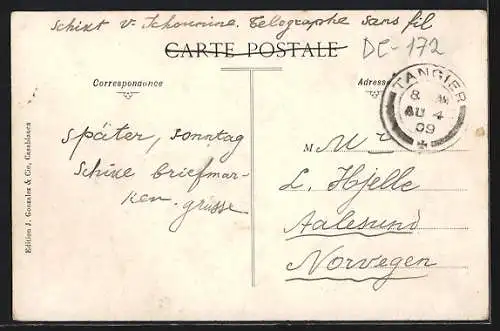 schixt v. Tchourine. Telegraphe sans fil
DC-172
CARTE POSTALE
Correspondance
Adresse
TANGIER
8 AM
AU 4
09
später, sonntag
schixe briefmar-
ken. grüsse
M
L. Hjelle
Aalesund
Norvegen
Edition J. Gonzalez & Cie, Casablanca